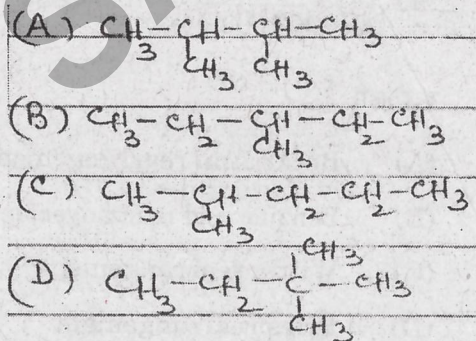 (A) CH3-CH-CH-CH3
CH3 CH3
(B) CH3-CH2-CH-CH2-CH3
CH3
(C) CH3-CH-CH2-CH2-CH3
CH3
CH3
(D) CH3-CH2-C-CH3
CH3